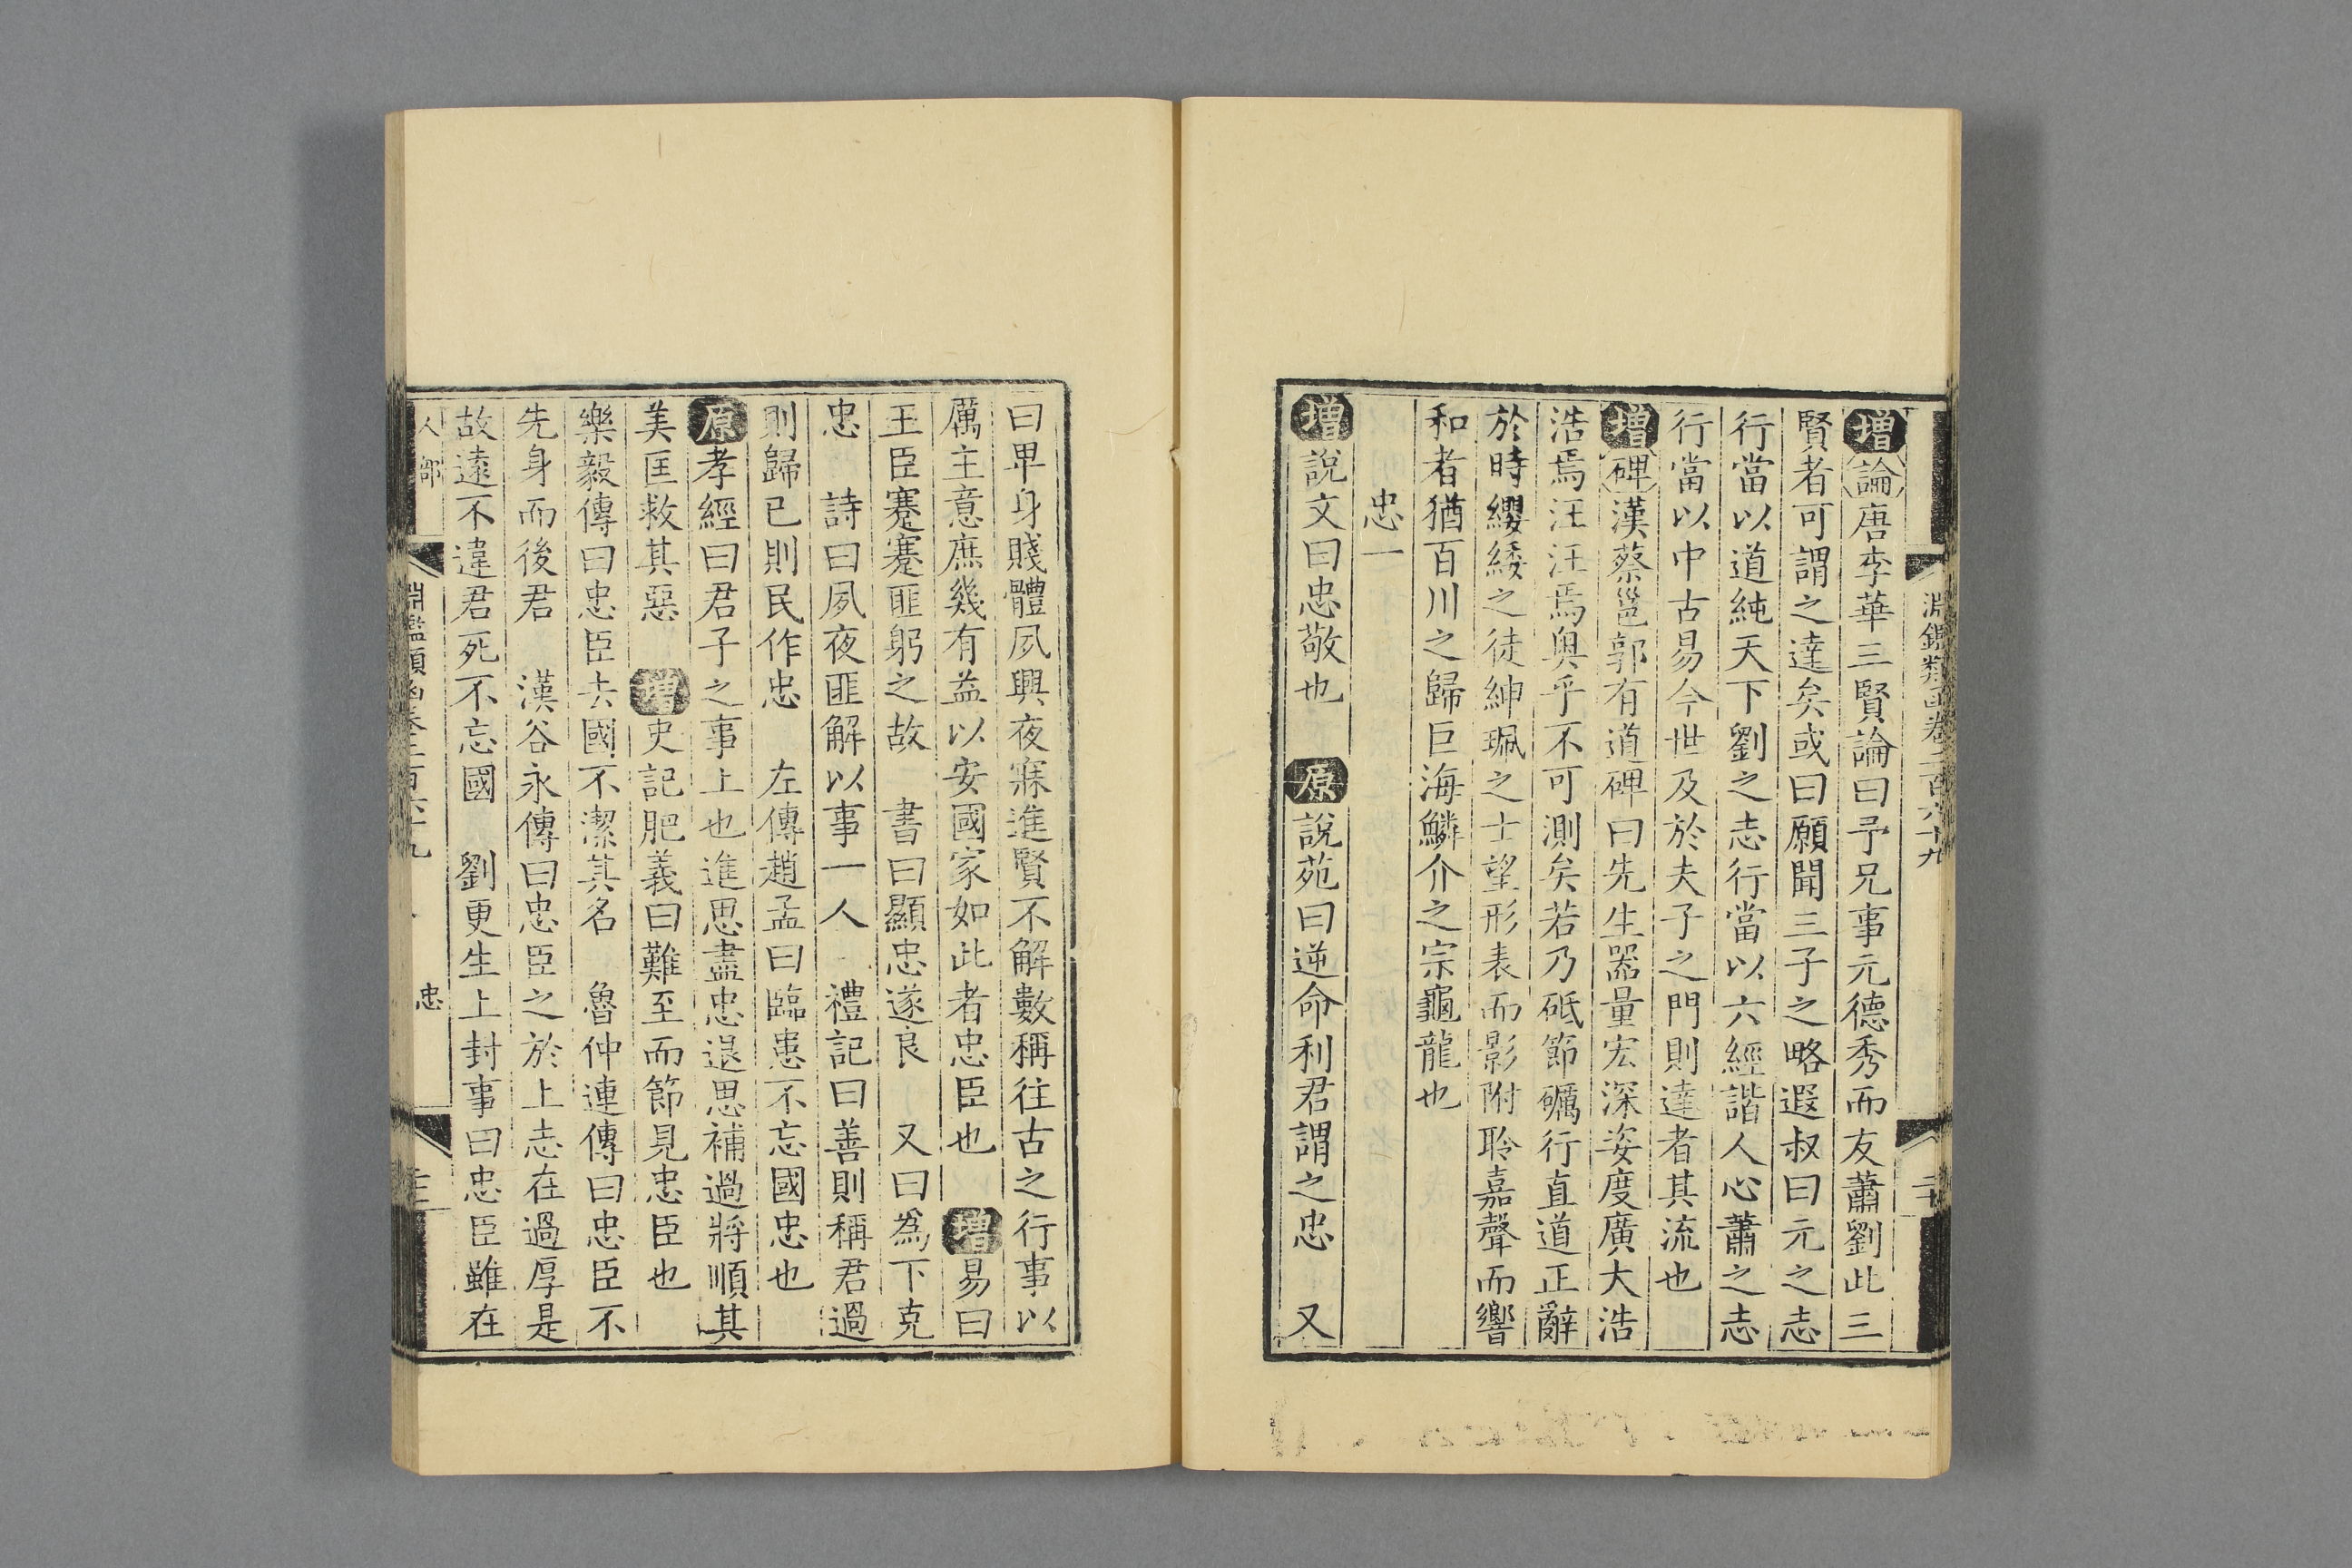 淵鑑類函卷二百六十九
增論唐李華三賢論曰予兄事元德秀而友蕭劉此三
賢者可謂之達矣或曰願聞三子之略遐叔曰元之志
行當以道純天下劉之志行當以六經諧人心蕭之志
行當以中古易今世及於夫子之門則達者其流也
增碑漢蔡邕郭有道碑曰先生器量宏深姿度廣大浩
浩焉汪汪焉奥乎不可測矣若乃砥節礪行直道正辭
於時纓緌之徒紳珮之士望形表而影附聆嘉聲而響
和者猶百川之歸巨海鱗介之宗龜龍也
忠一
增說文曰忠敬也 原說苑曰逆命利君謂之忠 又
曰卑身賤體夙興夜寐進賢不解數稱往古之行事以
厲主意庶幾有益以安國家如此者忠臣也 增易曰
王臣蹇蹇匪躬之故 書曰顯忠遂良 又曰為下克
忠 詩曰夙夜匪解以事一人 禮記曰善則稱君過
則歸已則民作忠 左傳趙孟曰臨患不忘國忠也
原孝經曰君子之事上也進思盡忠退思補過將順其
美匡救其惡 增史記肥義曰難至而節見忠臣也
樂毅傳曰忠臣去國不潔其名 魯仲連傳曰忠臣不
先身而後君 漢谷永傳曰忠臣之於上志在過厚是
故遠不違君死不忘國 劉更生上封事曰忠臣雖在
人部 淵鑑類函卷二百六十九 忠